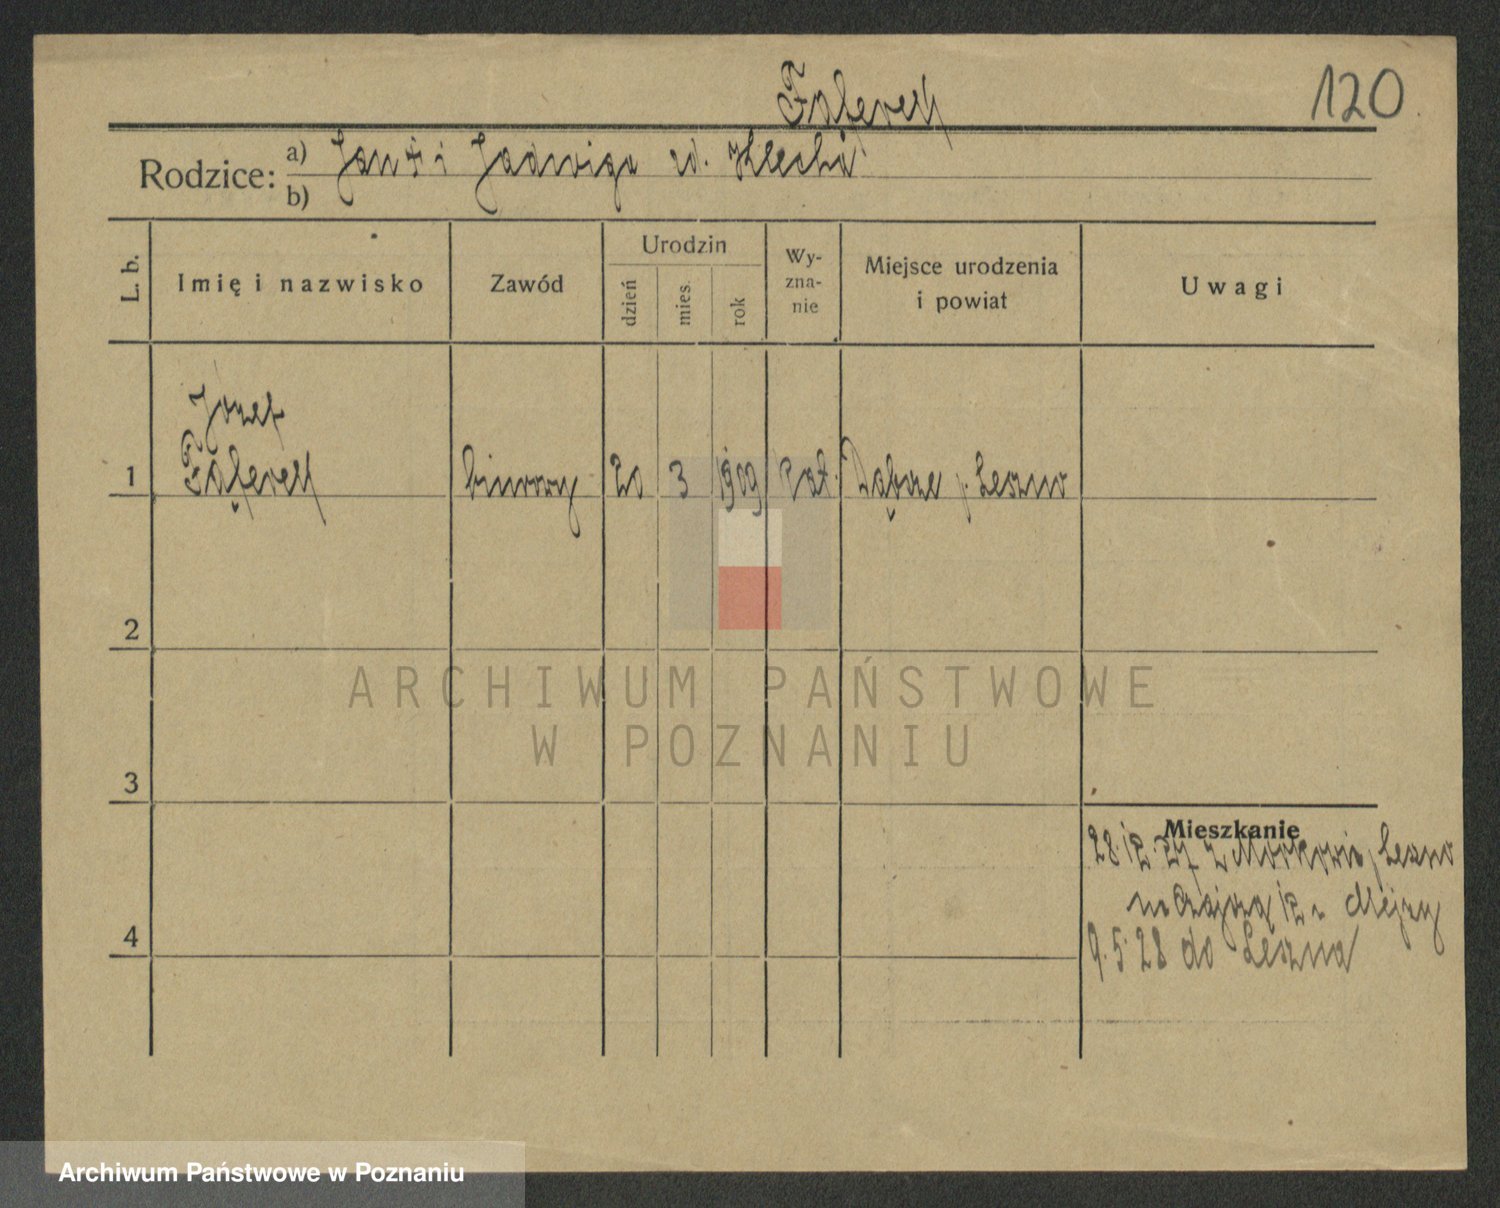 120
Rodzice: a) Jan † i Jadwiga zd. Klecha
b)
L. b.
Imię i nazwisko
Zawód
Urodzin
dzień
mies.
rok
Wy-
zna-
nie
Miejsce urodzenia
i powiat
Uwagi
Józef
1 biurowy 20 3 1909 kat. Dąbcze p. Leszno
2
3
4
Mieszkanie
28.12.27 z p. Leszno
9.5.28 do Leszna
ARCHIWUM PAŃSTWOWE
W POZNANIU
Archiwum Państwowe w Poznaniu